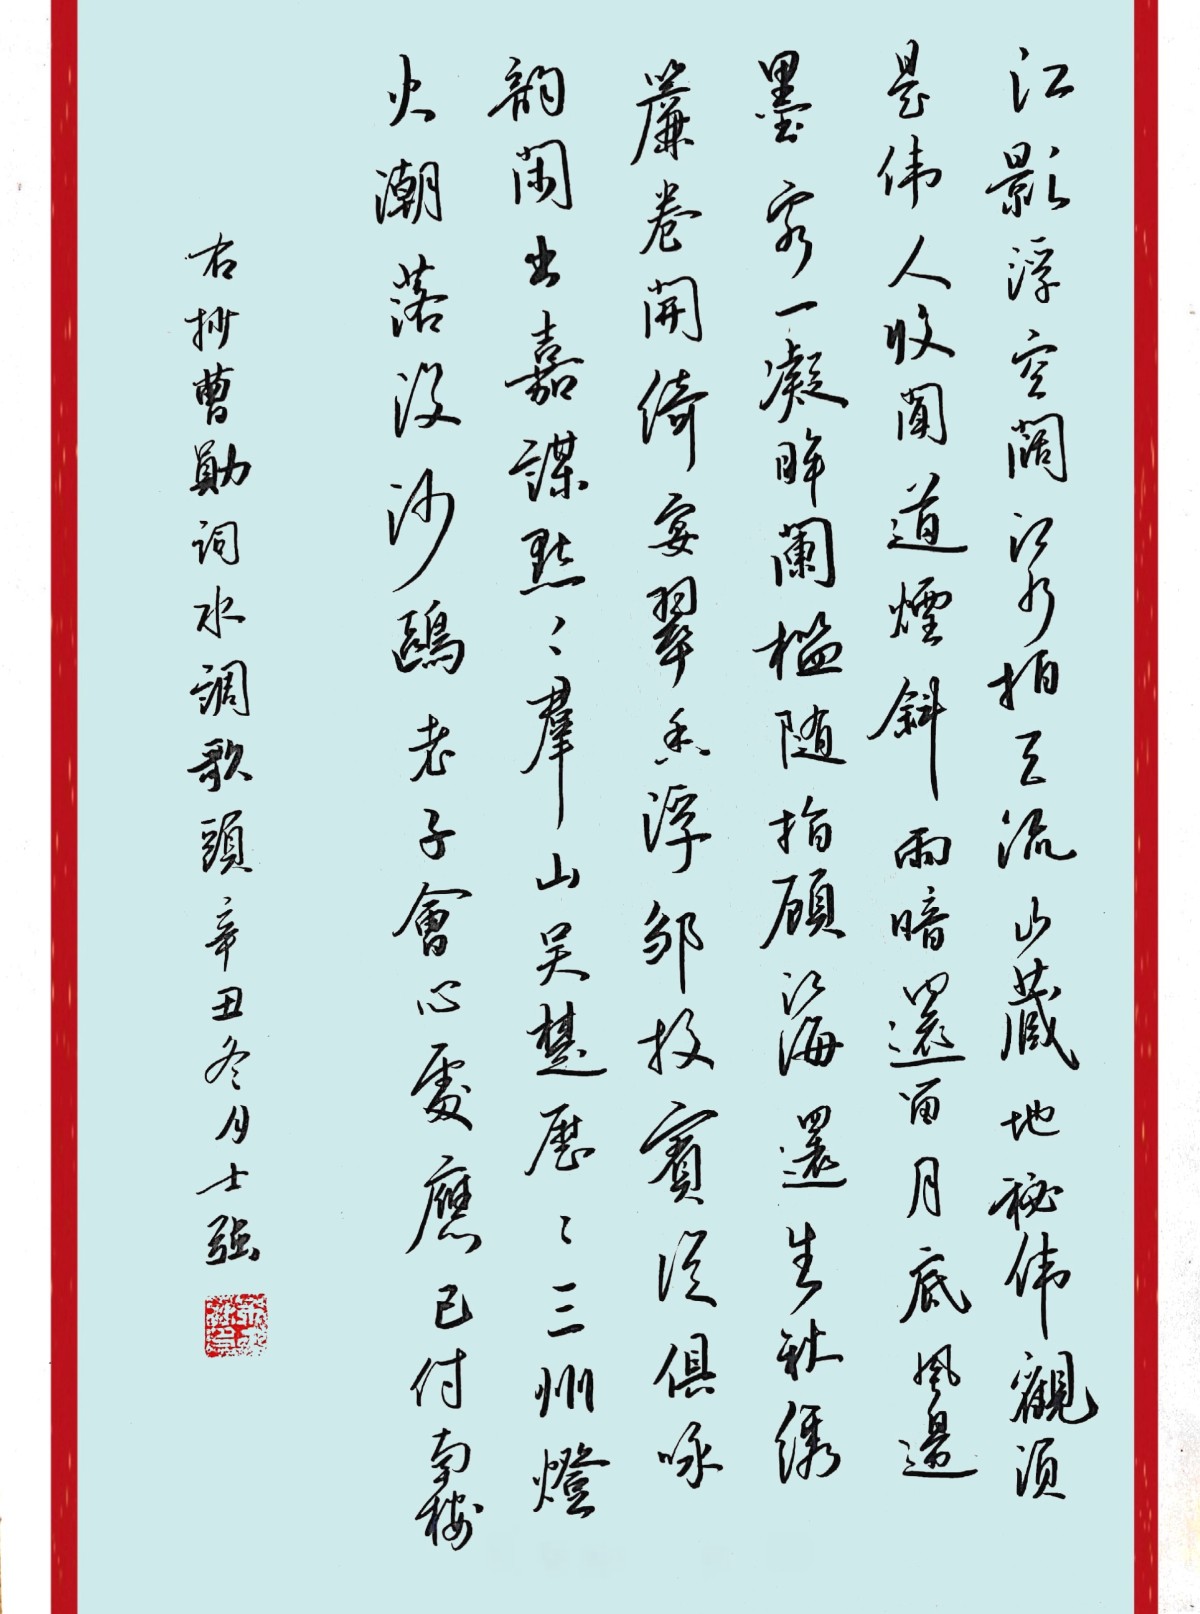 江影浮空闊江水拍天流山藏地秘伟觀須
是伟人收聞道煙斜雨暗還留月底風邊
墨客一凝眸闌檻随指顧江海還生秋绣
簾卷開綺宴翠香浮邹枚賓從俱咏
韵閑出嘉謀點〻羣山吴楚歷〻三州燈
火潮落没沙鷗老子會心處應已付南樓
右抄曹勛词水調歌頭辛丑冬月士强